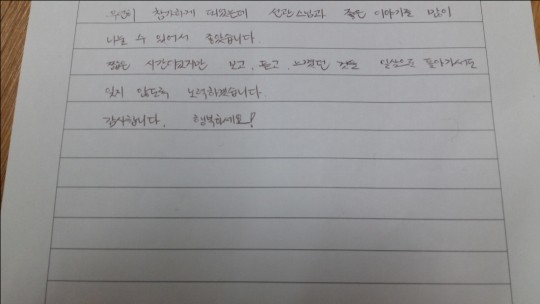 우연히 참가하게 되었는데 선관스님과 좋은 이야기를 많이
나눌 수 있어서 좋았습니다.
짧은 시간이었지만 보고, 듣고, 느꼈던 것을 일상으로 돌아가서도
잊지 않도록 노력하겠습니다.
감사합니다. 행복하세요!